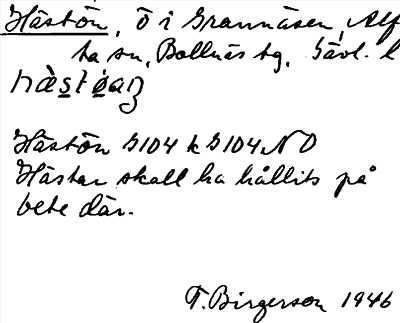 Hästön, ö i Grannäsen, Alf
ta sn, Bollnäs tg, Gävl. l

Hästön G104 k G104 NO
Hästar skall ha hållits på
bete där.
T. Birgerson 1946